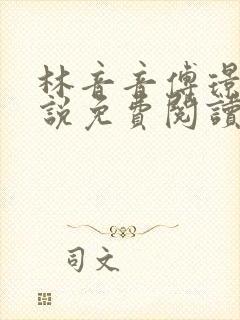 林音音傅璟
說免費閱讀
司文